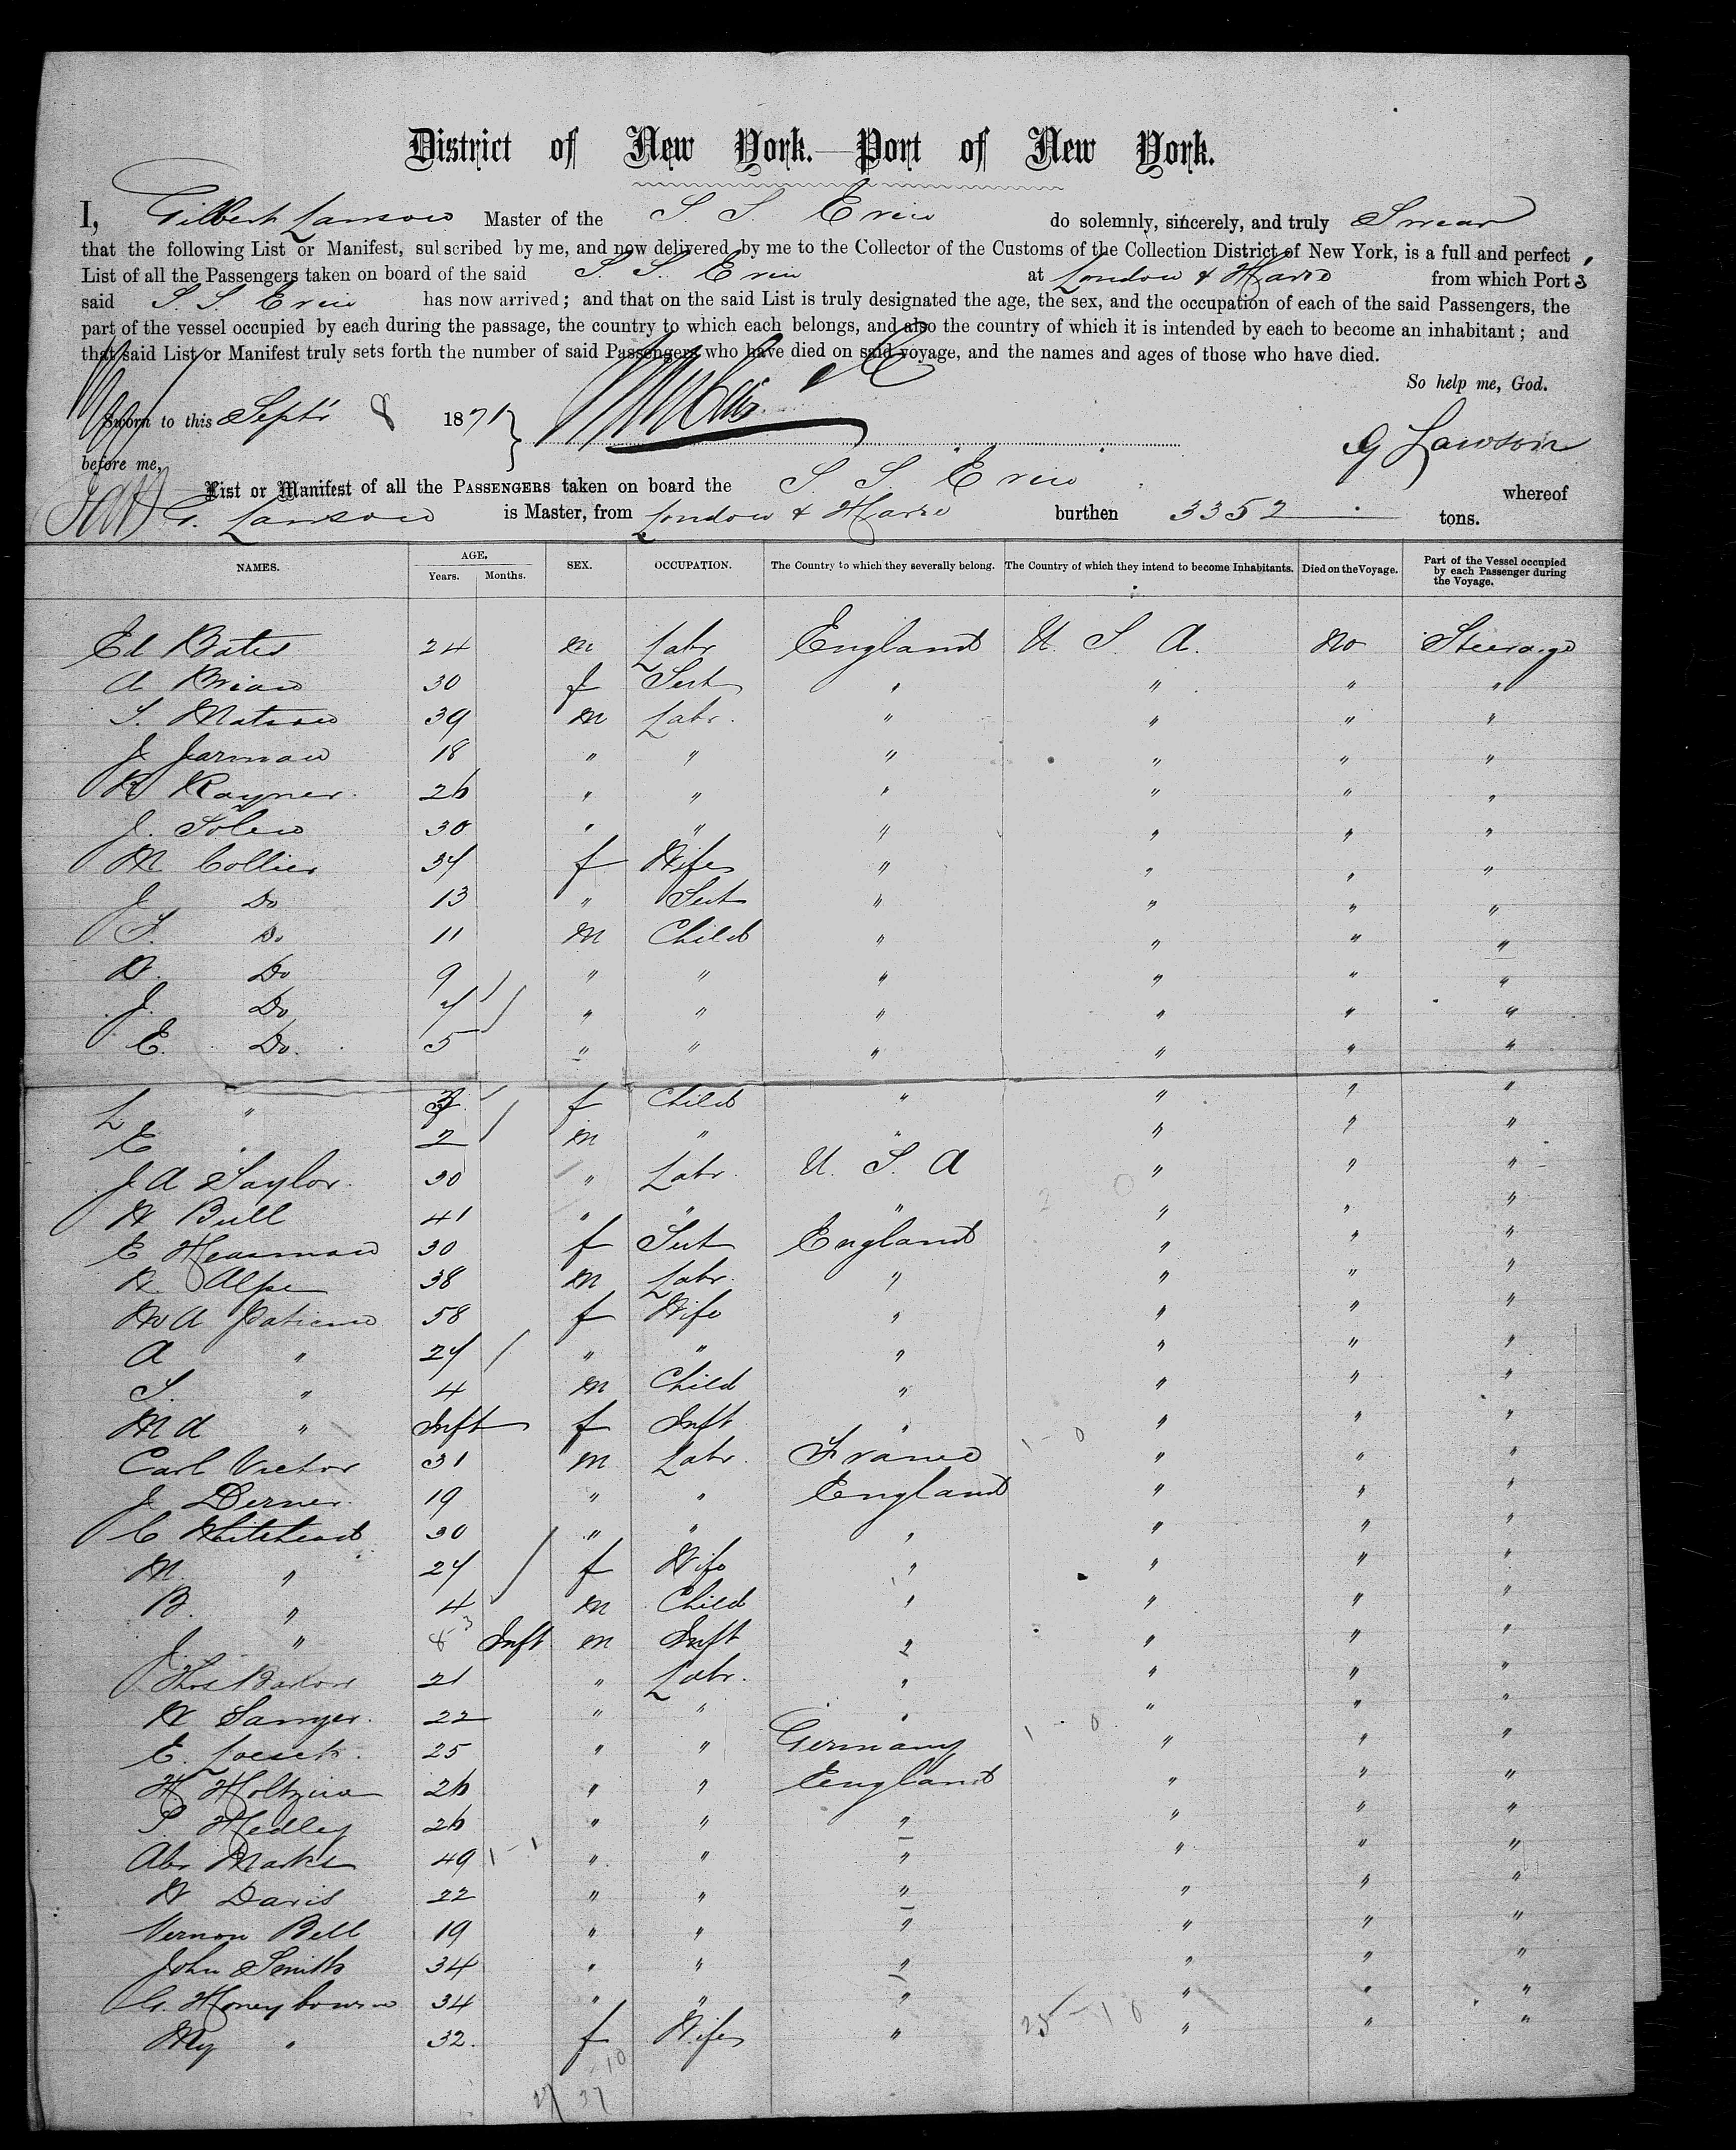 District of New York.—Port of New York.
I, Gilbert Lawson Master of the S. S. Erin do solemnly, sincerely, and truly Swear
that the following List or Manifest, subscribed by me, and now delivered by me to the Collector of the Customs of the Collection District of New York, is a full and perfect
List of all the Passengers taken on board of the said S. S. Erin at London & Havre from which Port s
said S. S. Erin has now arrived; and that on the said List is truly designated the age, the sex, and the occupation of each of the said Passengers, the
part of the vessel occupied by each during the passage, the country to which each belongs, and also the country of which it is intended by each to become an inhabitant; and
that said List or Manifest truly sets forth the number of said Passengers who have died on said voyage, and the names and ages of those who have died.
So help me, God.
Sworn to this Septr 8 1871
G Lawson
before me,
List or Manifest of all the PASSENGERS taken on board the S. S. Erin whereof
G. Lawson is Master, from London & Havre burthen 3352 tons.
NAMES. AGE. Years. Months. SEX. OCCUPATION. The Country to which they severally belong. The Country of which they intend to become Inhabitants. Died on the Voyage. Part of the Vessel occupied by each Passenger during the Voyage.
Ed Bates 24 m Labr England U. S. A. No Steerage
A Brian 30 f Sert " " " "
S. Matson 39 m Labr. " " " "
J Jarman 18 " " " " " "
R Rayner. 26 " " " " " "
J. Solen 30 " " " " " "
M Collier 34 f Wife " " " "
J Do 13 " Sert " " " "
F. Do 11 m Child " " " "
W. Do 9 " " " " " "
J. Do 7 " " " " " "
E. Do. 5 " " " " " "
L " 3 f Child " " " "
E " 2 m " " " " "
J. A Saylor 30 " Labr. U. S. A " " "
W Bull 41 " " " " " "
E Heasman 30 f Sert England " " "
R. Alpe 38 m Labr. " " " "
Patience 58 f Wife " " " "
A " 27 / " " " " " "
S. " 4 m Child " " " "
M A " Inft f Inft " " " "
Carl Victor 31 m Labr. France " " "
J Derner 19 " " England " " "
C Whitehead 30 " " " " " "
M. " 27 f Wife " " " "
B. " 4 m Child " " " "
J. " Inft m Inft " " " "
Thos Barlow 21 " Labr. " " " "
W Sawyer. 22 " " " " " "
E. Loesch. 25 " " Germany " " "
H Holtzine 26 " " England " " "
S Hedley 26 " " " " " "
Abr Marks 49 " " " " " "
W Davis 22 " " " " " "
Vernon Bell 19 " " " " " "
John Smith 34 " " " " " "
G. Honeybourne 34 " " " " " "
My " 32. f Wife " " " "